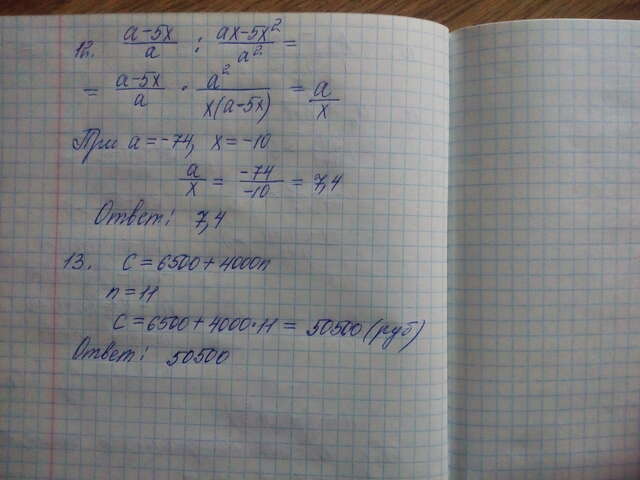 12. (a-5x)/a : (ax-5x²)/a² =
= (a-5x)/a · a²/(x(a-5x)) = a/x
При a=-74, x=-10
a/x = -74/-10 = 7,4
Ответ: 7,4
13. C=6500+4000n
n=11
C=6500+4000·11= 50500 (руб)
Ответ: 50500